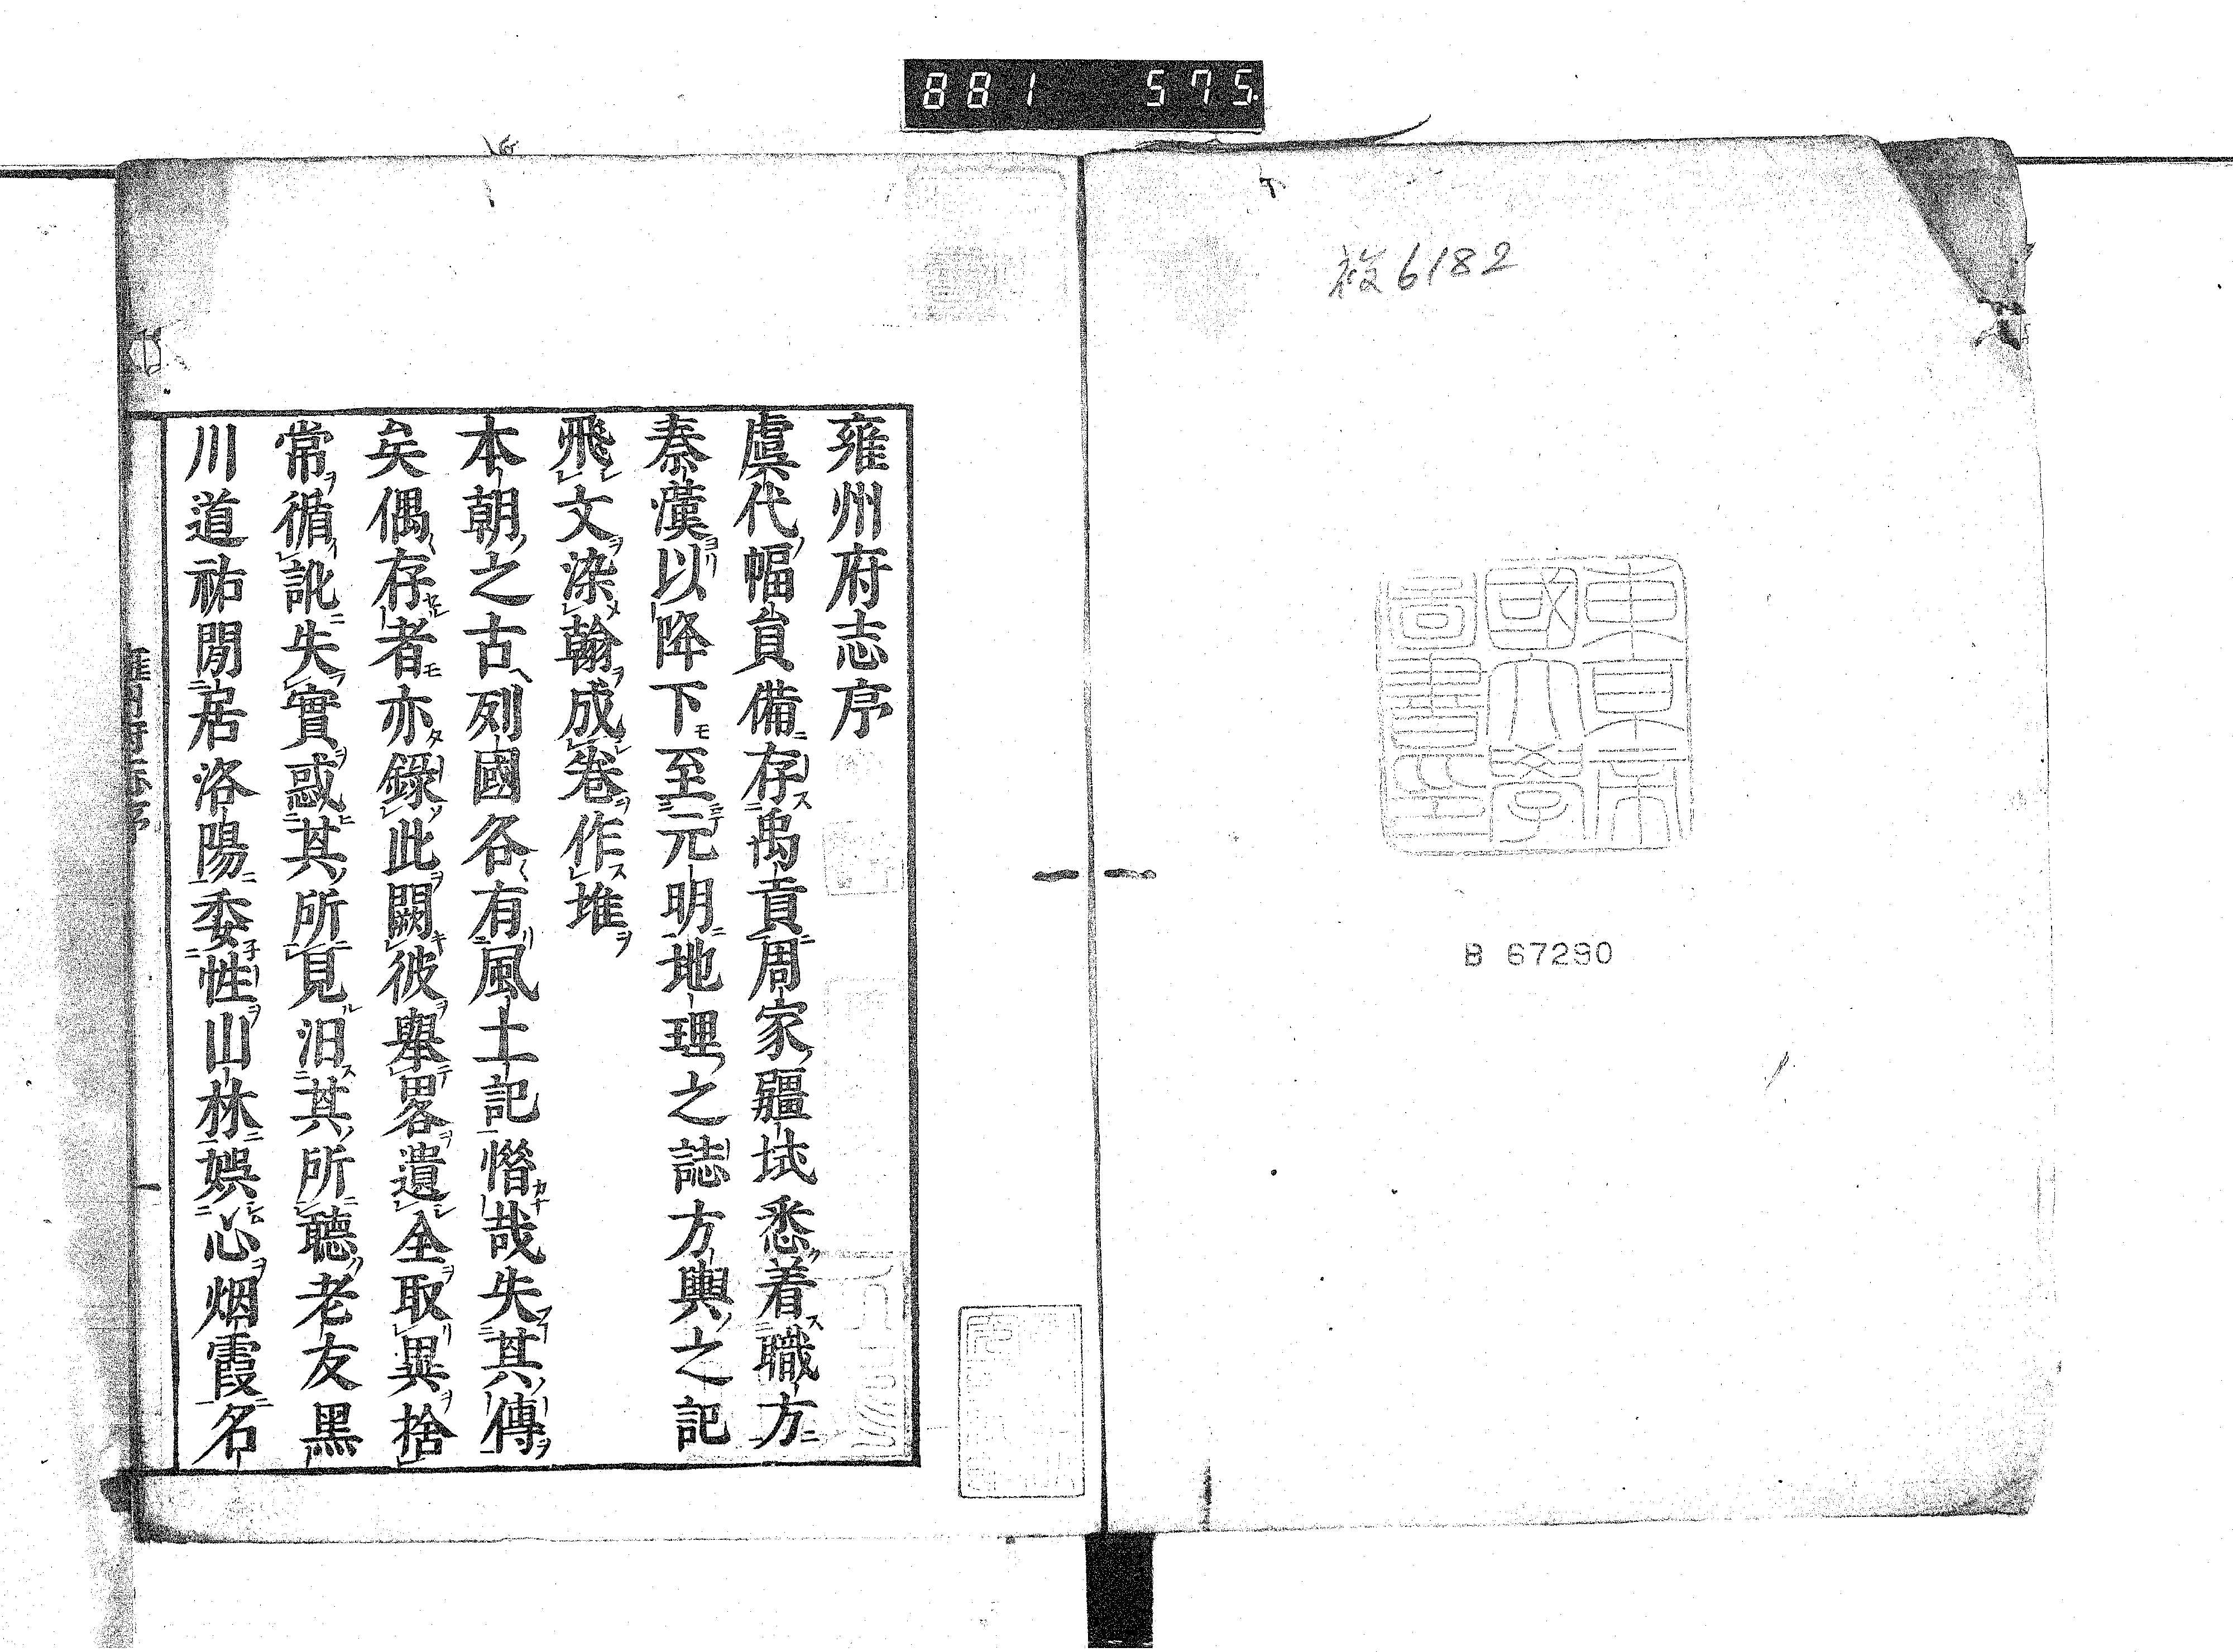 881 575
複6182
東京帝
國大學
圖書印
B 67290
雍州府志序
虞代幅員備存禹貢周家疆域悉着職方
秦漢以降下至元明地理之誌方輿之記
飛文染翰成卷作堆
本朝之古列國各有風土記惜哉失其傳
矣偶存者亦錄此闕彼舉畧遺全取異捨
常循訛失實惑其所見汩其所聽老友黑
川道祐閒居洛陽委性山林娯心烟霞名
雍州府志序